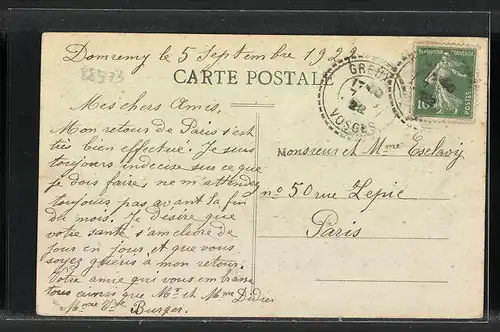 Domremy le 5 Septembre 1922
88973
CARTE POSTALE
GREUX
17
7
22
VOSGES
REPUBLIQUE FRANÇAISE
10
POSTES
Mes chers Amis,
Mon retour de Paris s'est
très bien effectué. Je suis
toujours indecise sur ce que
je dois faire, ne m'attendez
toujours pas avant la fin
du mois. Je désire que
votre santé s'améliore de
jour en jour et que vous
soyez guéris à mon retour.
Votre amie qui vous embrasse
tous ainsi que Mr et Mme Didier
Mme Vve Burger.
Monsieur et Mme Esclavy
no 50 rue Lepic
Paris